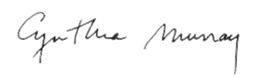 Cynthia Murray